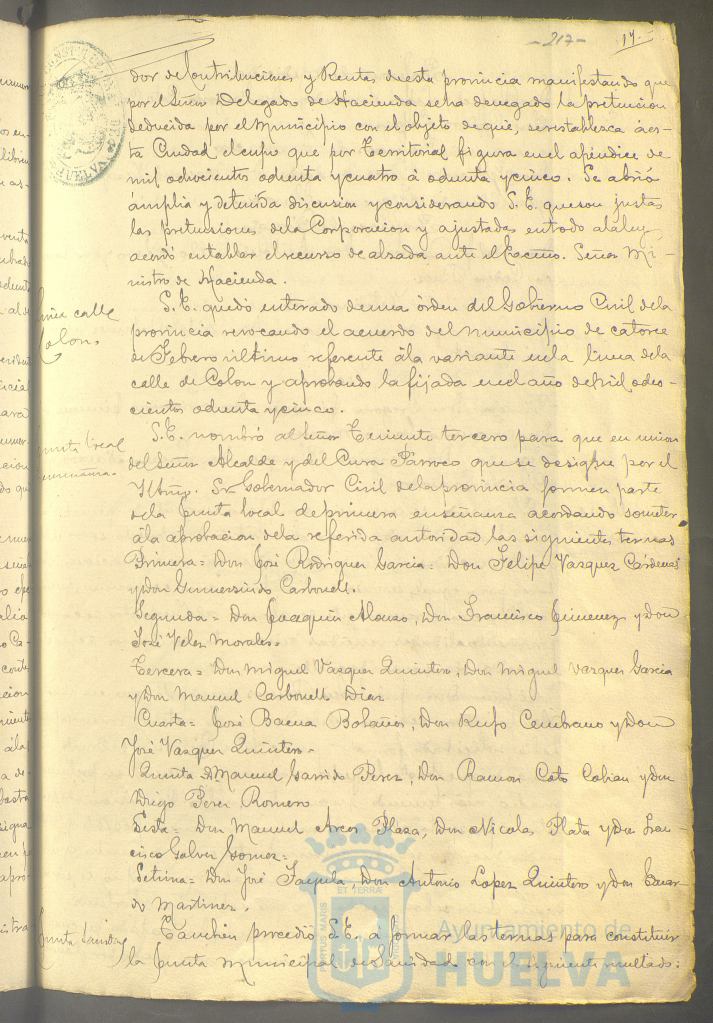 -217- 17.
dor de Contribuciones y Rentas de esta provincia manifestando que
por el Señor Delegado de Hacienda se ha denegado la pretension
deducida por el Municipio con el objeto de que, se restablezca á es-
ta Ciudad el cupo que por Territorial figura en el apéndice de
mil ochocientos ochenta y cuatro á ochenta y cinco. Se abrió
ámplia y detenida discusion y considerando S. E. que son justas
las pretensiones de la Corporacion y ajustadas en todo á la ley
acordó entablar el recurso de alzada ante el Excmo. Señor Mi-
nistro de Hacienda.
linea calle
Colon.
S. E. quedó enterado de una órden del Gobierno Civil de la
provincia revocando el acuerdo del municipio de catorce
de Febrero último referente á la variante en la linea de la
calle de Colon y aprobando la fijada en el año de mil ocho-
cientos ochenta y cinco.
Junta local
S. E. nombró al Señor Teniente tercero para que en union
del Señor Alcalde y del Cura Párroco que se designe por el
Iltmo. Sr. Gobernador Civil de la provincia formen parte
de la Junta local de primera enseñanza acordando someter
á la aprobacion de la referida autoridad las siguientes ternas
Primera = Don José Rodriguez Garcia = Don Felipe Vazquez Cárdenas
y Don Gumersindo Carbonell.
Segunda = Don Joaquin Alonso, Don Francisco Jimenez y Don
José Velez Morales =
Tercera = Don Miguel Vazquez Quintero, Don Miguel Vazquez Garcia
y Don Manuel Carbonell Diaz
Cuarta = José Baena Bolaños, Don Rufo Cembrano y Don
José Vazquez Quintero =
Quinta D. Manuel Garrido Perez, Don Ramon Coto Cobian y Don
Diego Perez Romero
Sesta = Don Manuel Arcos Plaza, Don Nicolas Plata y Don Fran-
cisco Galvez Gomez =
Setima = Don José , Don Antonio Lopez Quintero y Don
Martinez.
Junta Sanidad
Tambien procedió S. E. á formar las ternas para constituir
la Junta municipal de Sanidad con el siguiente resultado:
Ayuntamiento de
HUELVA